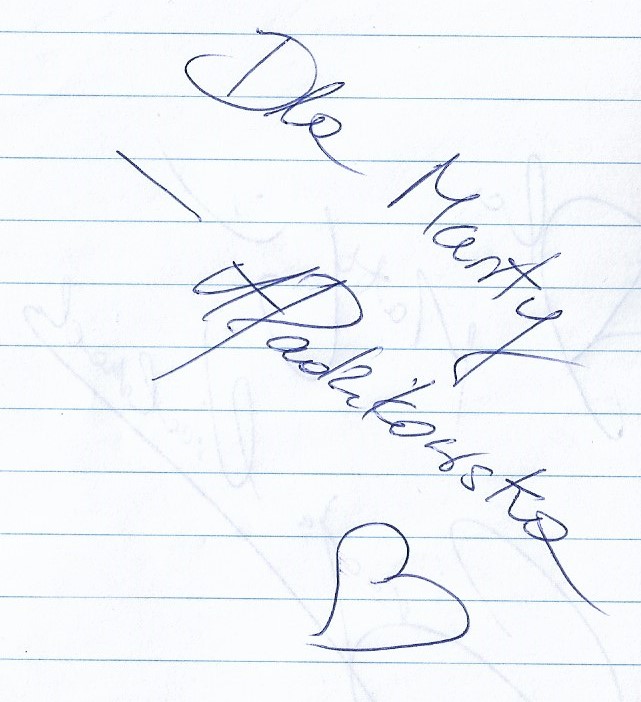 Dla Marty
APadzikowska